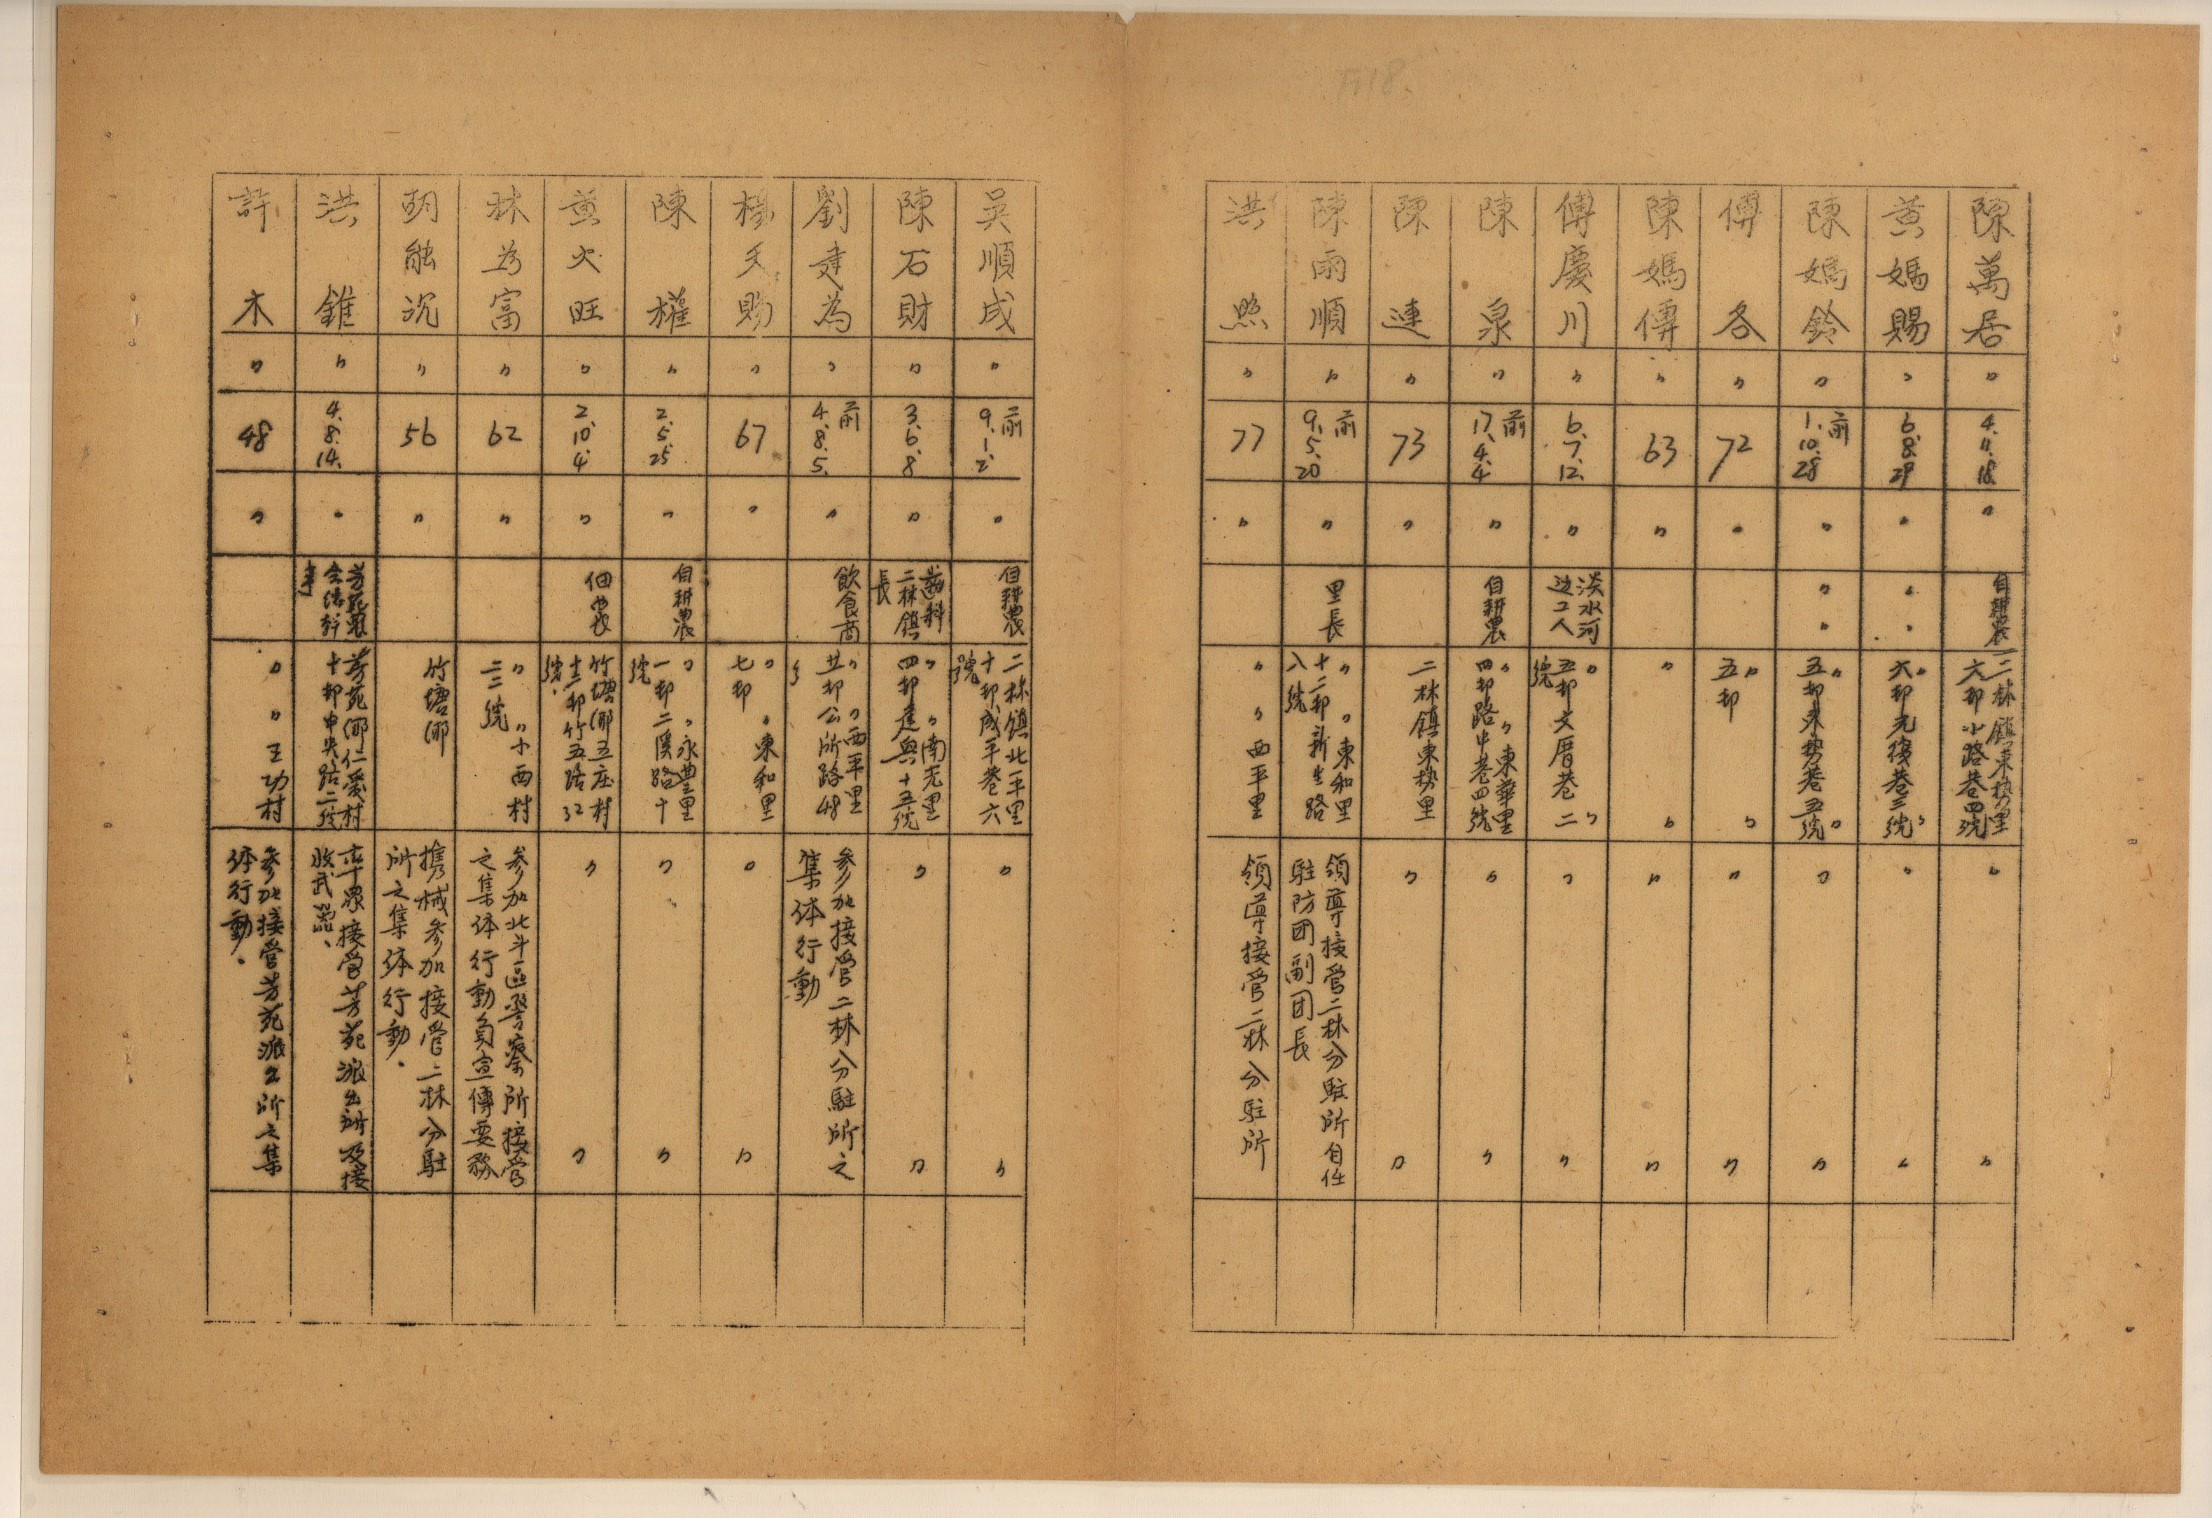 陳萬居
〃
4.11.18.
〃
自耕農
二林鎮東勢里
六邻小路巷四號
〃
〃
黃媽賜
〃
6.8.29
〃
〃〃
〃〃
六邻光復巷三號
〃
〃
陳媽鈴
〃
前
1.10.28
〃
〃〃
〃〃
五邻東勢巷五號
〃
〃
傅各
〃
72
〃
〃〃
五邻
〃
〃
陳媽傳
〃
63
〃
〃〃
〃
〃
傅慶川
〃
6.7.12.
〃
淡水河
边工人
〃〃
五邻文厝巷二
號
〃
〃
陳泉
〃
前
17.4.4
〃
自耕農
〃〃東華里
四邻路中巷四號
〃
〃
陳連
〃
73
〃
二林鎮東勢里
〃
〃
陳雨順
〃
前
9.5.20
〃
里長
〃〃東和里
十二邻新生路
八號
領導接管二林分駐所自任
駐防团副团長
洪照
〃
77
〃
〃〃西平里
領導接管二林分駐所
吳順成
〃
前
9.1.2.
〃
自耕農
二林鎮北平里
十邻成平巷六
號
〃
〃
陳石財
〃
3.6.8
〃
齒科
二林鎮
長
〃〃南光里
四邻建興十五號
〃
〃
劉建為
〃
前
4.8.5.
〃
飲食商
〃〃西平里
廿邻公所路48
參加接管二林分駐所之
集体行動
楊天賜
〃
67
〃
〃〃東和里
七邻
〃
〃
陳權
〃
2.5.25
〃
自耕農
〃〃永豐里
一邻二溪路十
號
〃
〃
黃火旺
〃
2.10.4.
〃
佃農
竹塘鄉五庄村
十一邻竹五路32
號.
〃
〃
林為富
〃
62
〃
〃〃小西村
三三號
參加北斗區警察所接管
之集体行動負宣傳要務
胡能沉
〃
56
〃
竹塘鄉
攜械參加接管二林分駐
所之集体行動.
洪錐
〃
4.8.14.
〃
芳苑農
会總幹
事
芳苑鄉仁愛村
十邻中央路二號
率眾接管芳苑派出所及接
收武器、
許木
〃
48
〃
〃〃王功村
參加接管芳苑派出所之集
体行動.